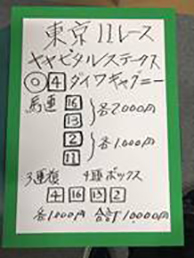 東京11レース
キャピタルステークス
◎ 4 ダイワキャグニー
馬連 16
13 }各2,000円
2
11 }各1,000円
3連複 4頭ボックス
4 16 13 2
各1000円 合計10,000円